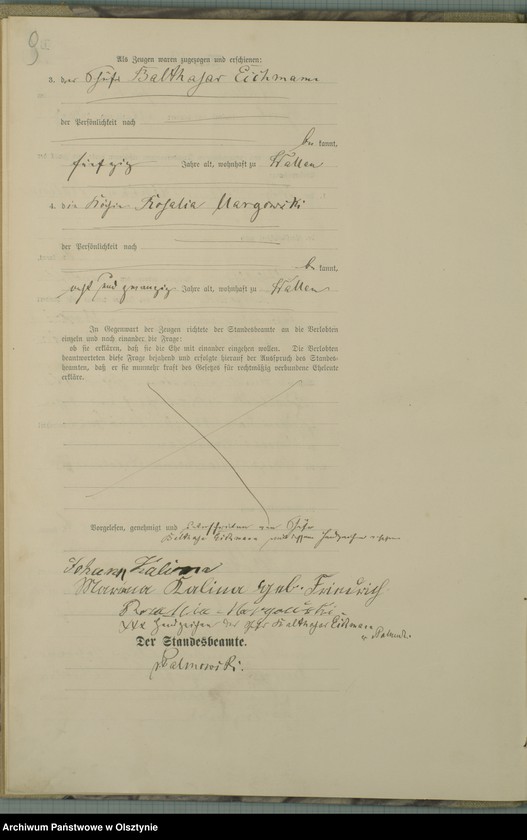 9
Als Zeugen waren zugezogen und erschienen:
3. der Balthasar Eichmann
der Persönlichkeit nach
be kannt,
fünfzig Jahre alt, wohnhaft zu Wallen
4. die Köchin Rosalia Margowski
der Persönlichkeit nach
be kannt,
acht und zwanzig Jahre alt, wohnhaft zu Wallen
In Gegenwart der Zeugen richtete der Standesbeamte an die Verlobten
einzeln und nach einander die Frage:
ob sie erklären, daß sie die Ehe mit einander eingehen wollen. Die Verlobten
beantworteten diese Frage bejahend und erfolgte hierauf der Ausspruch des Standes-
beamten, daß er sie nunmehr kraft des Gesetzes für rechtmäßig verbundene Eheleute
erkläre.
Vorgelesen, genehmigt und unterschrieben von
Balthasar Eichmann Handzeichen
Johann Kalina
Marina Kalina geb. Friedrich
Rosalia Margowski
XXX Handzeichen des Balthasar Eichmann
Der Standesbeamte.
Palmowski.
Archiwum Państwowe w Olsztynie